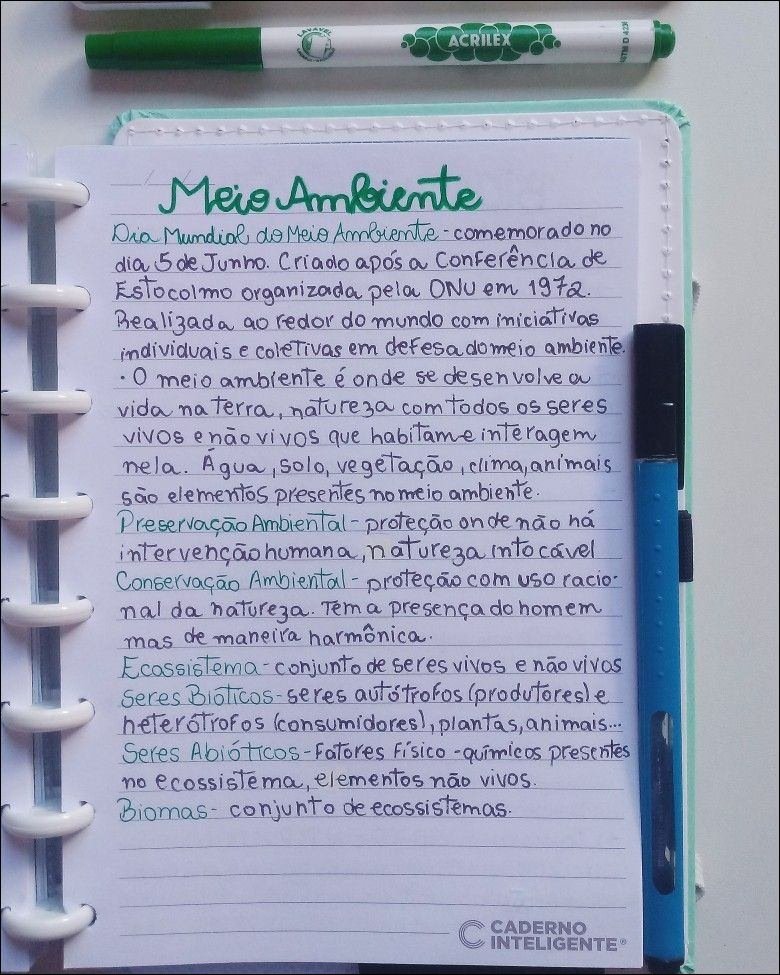 LAVÁVEL
ACRILEX
ASTM D 4236
Meio Ambiente
Dia Mundial do Meio Ambiente - comemorado no
dia 5 de Junho. Criado após a Conferência de
Estocolmo organizada pela ONU em 1972.
Realizada ao redor do mundo com iniciativas
individuais e coletivas em defesa do meio ambiente.
· O meio ambiente é onde se desenvolve a
vida na terra, natureza com todos os seres
vivos e não vivos que habitam e interagem
nela. Água, solo, vegetação, clima, animais
são elementos presentes no meio ambiente.
Preservação Ambiental - proteção onde não há
intervenção humana, natureza intocável
Conservação Ambiental - proteção com uso racio-
nal da natureza. Tem a presença do homem
mas de maneira harmônica.
Ecossistema - conjunto de seres vivos e não vivos
Seres Bióticos - seres autótrofos (produtores) e
heterótrofos (consumidores), plantas, animais...
Seres Abióticos - Fatores Físico - químicos presentes
no ecossistema, elementos não vivos.
Biomas - conjunto de ecossistemas.
CADERNO
INTELIGENTE®